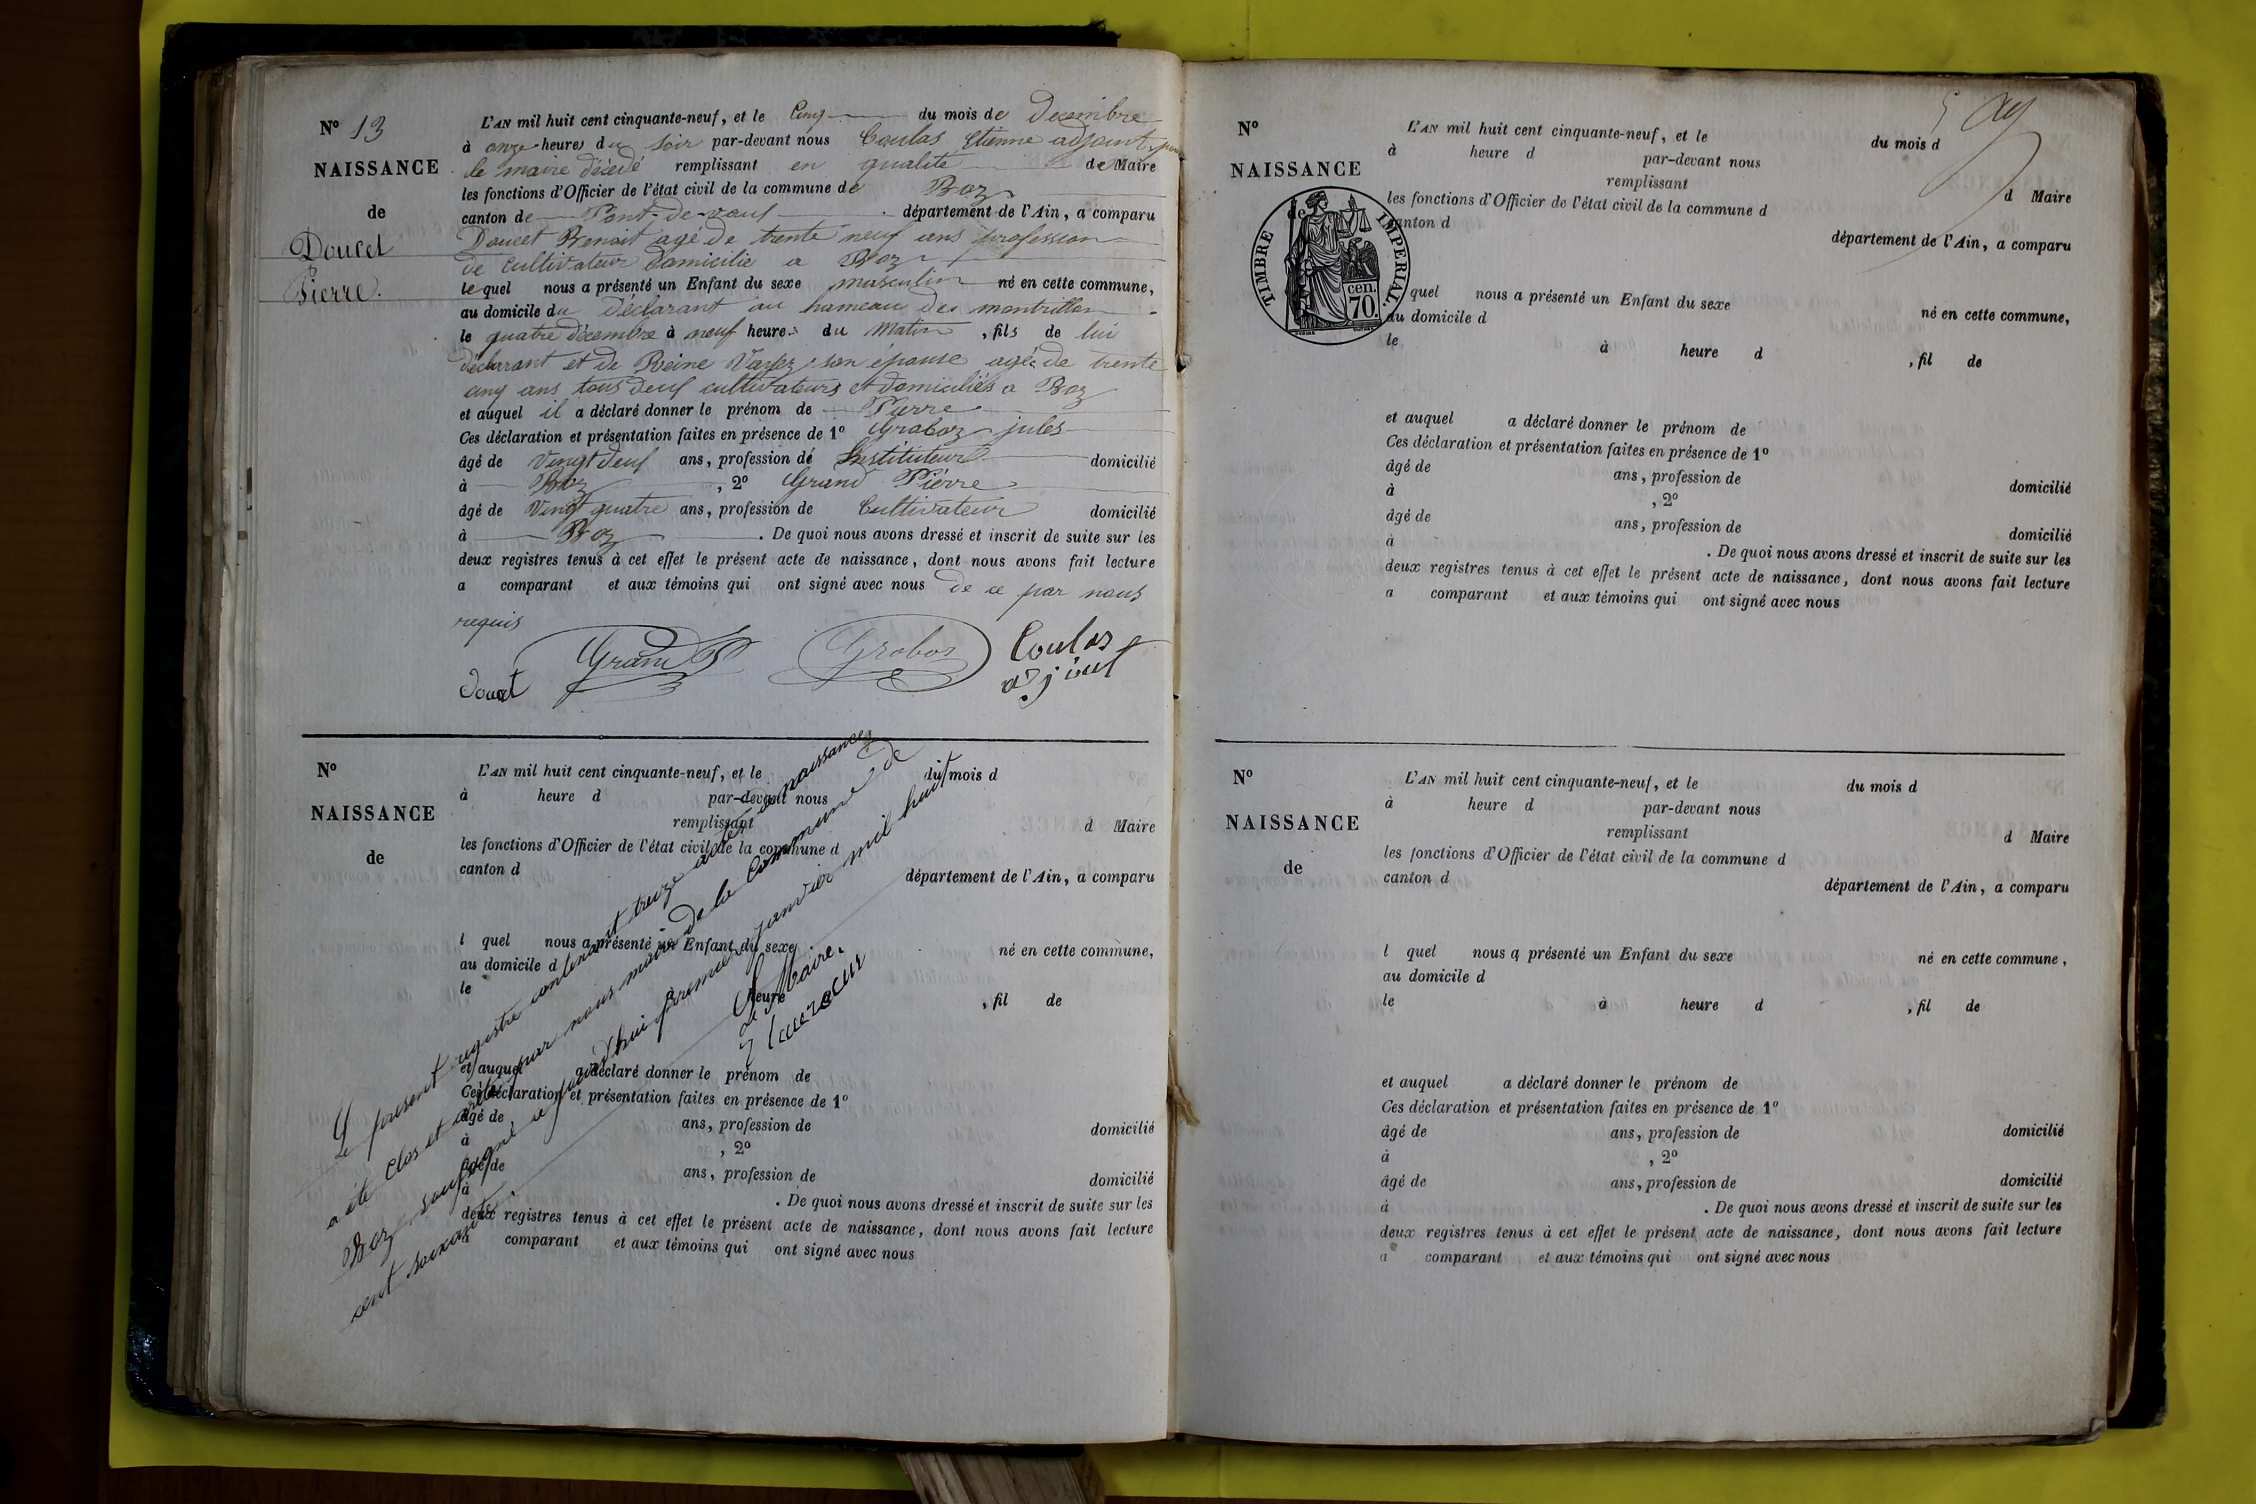 N° 13
NAISSANCE
de
Doucet
Pierre.
L'AN mil huit cent cinquante-neuf, et le Cinq du mois de Decembre
à onze heures du Soir par-devant nous Coulas Etienne adjoint, pour
le maire décédé remplissant en qualité de Maire
les fonctions d'Officier de l'état civil de la commune de Boz
canton de Pont-de-vaux département de l'Ain, a comparu
Doucet Benoit agé de trente neuf ans profession
de Cultivateur domicilié a Boz
lequel nous a présenté un Enfant du sexe masculin né en cette commune,
au domicile du déclarant au hameau des montrillon
le quatre décembre à neuf heures du Matin, fils de lui
déclarant et de Reine Vayez son épouse agée de trente
cinq ans tous deux cultivateurs et domiciliés a Boz
et auquel il a déclaré donner le prénom de Pierre
Ces déclaration et présentation faites en présence de 1° Groboz jules
âgé de Vingt deux ans, profession de Instituteur domicilié
à Boz, 2° Grand Pierre
âgé de Vingt quatre ans, profession de Cultivateur domicilié
à Boz. De quoi nous avons dressé et inscrit de suite sur les
deux registres tenus à cet effet le présent acte de naissance, dont nous avons fait lecture
a comparant et aux témoins qui ont signé avec nous de ce par nous
requis
Doucet Grand Grobos Coulas
adjoint
N°
NAISSANCE
de
L'AN mil huit cent cinquante-neuf, et le du mois d
à heure d par-devant nous
remplissant d Maire
les fonctions d'Officier de l'état civil de la commune d
canton d département de l'Ain, a comparu
l quel nous a présenté un Enfant du sexe né en cette commune,
au domicile d
le à heure , fil de
et auquel a déclaré donner le prénom de
Ces déclaration et présentation faites en présence de 1°
âgé de ans, profession de domicilié
à , 2°
âgé de ans, profession de domicilié
à . De quoi nous avons dressé et inscrit de suite sur les
deux registres tenus à cet effet le présent acte de naissance, dont nous avons fait lecture
a comparant et aux témoins qui ont signé avec nous
Le présent registre contenant treize actes de naissances
a été clos et arrêté par nous maire de la Commune de
Boz soussigné ce jourd'hui premier janvier mil huit
cent soixante.
Le Maire.
N°
NAISSANCE
de
TIMBRE IMPERIAL.
cen.
70.
L'AN mil huit cent cinquante-neuf, et le du mois d
à heure d par-devant nous
remplissant d Maire
les fonctions d'Officier de l'état civil de la commune d
canton d département de l'Ain, a comparu
quel nous a présenté un Enfant du sexe né en cette commune,
au domicile d
le à heure d , fil de
et auquel a déclaré donner le prénom de
Ces déclaration et présentation faites en présence de 1°
âgé de ans, profession de domicilié
à , 2°
âgé de ans, profession de domicilié
à . De quoi nous avons dressé et inscrit de suite sur les
deux registres tenus à cet effet le présent acte de naissance, dont nous avons fait lecture
a comparant et aux témoins qui ont signé avec nous
N°
NAISSANCE
de
L'AN mil huit cent cinquante-neuf, et le du mois d
à heure d par-devant nous
remplissant d Maire
les fonctions d'Officier de l'état civil de la commune d
canton d département de l'Ain, a comparu
l quel nous a présenté un Enfant du sexe né en cette commune,
au domicile d
le à heure d , fil de
et auquel a déclaré donner le prénom de
Ces déclaration et présentation faites en présence de 1°
âgé de ans, profession de domicilié
à , 2°
âgé de ans, profession de domicilié
à . De quoi nous avons dressé et inscrit de suite sur les
deux registres tenus à cet effet le présent acte de naissance, dont nous avons fait lecture
a comparant et aux témoins qui ont signé avec nous